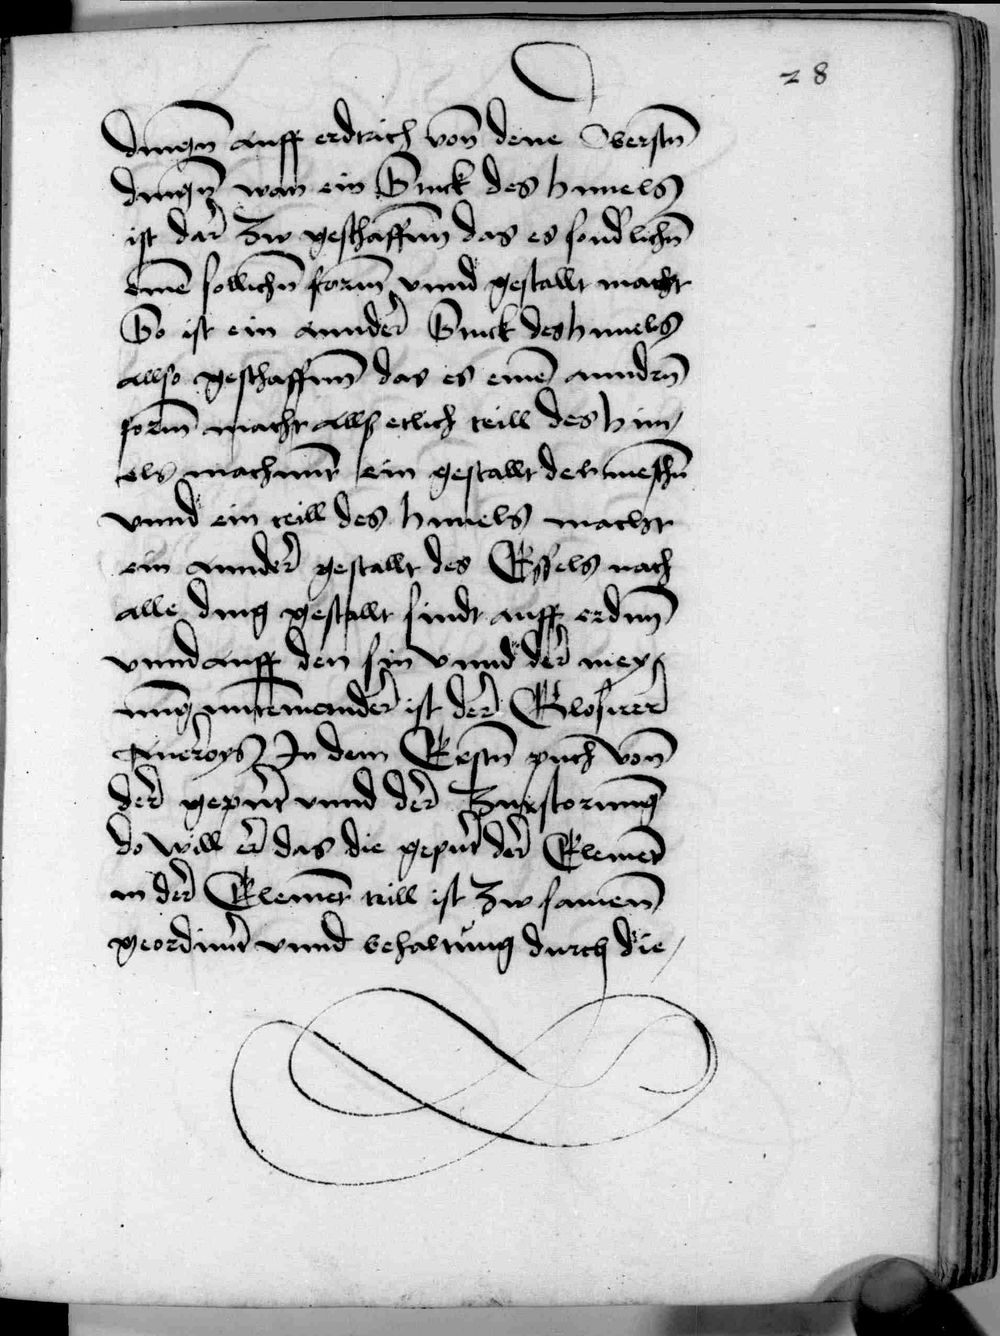 28
dingn̄ auff erdtrich von dene Oberstn̄
dingn̄ wan ein Stuck des himels
ist dar Zw geschaffenn das es sond'lichn̄
eine sollichn̄ form vnnd gestallt macht
So ist ein annder Stuck des himels
allso geschaffenn das es einē anndrn̄
form macht Alls etlich teill des him
els machennt ein gestallt des menschn̄
vnnd ein teill des himels macht
ein annder gestallt des Essels nach
alle ding gestallt sindt auff erdenn
vnnd auff den sin vnnd der mey
nung ist der Glosirer
Aueroys In dem Erstn̄ puch von
der gepurt vnnd der Zurstorung
do will er das die gepurt der Element
in der Element teill ist Zw samenn
geordinirt vnnd behaltung durch die